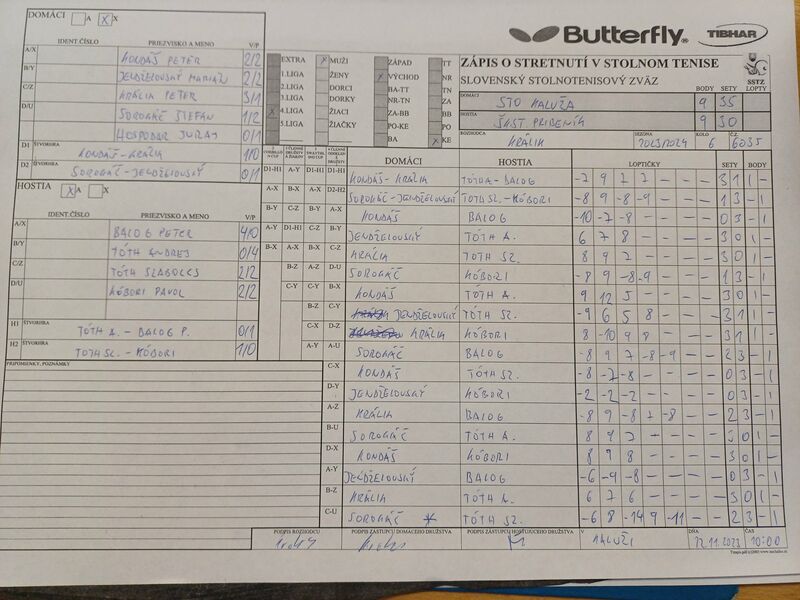 DOMÁCI A X X
Butterfly TIBHAR
IDENT.ČÍSLO PRIEZVISKO A MENO V/P
A/X KONDÁŠ PETER 2/2
B/Y JENDŽELOVSKÝ MARIÁN 2/2
C/Z KRÁLIK PETER 3/1
D/U SOROKÁČ ŠTEFAN 1/2
HOSPODÁR JURAJ 0/1
D1 ŠTVORHRA KONDÁŠ - KRÁLIK 1/0
D2 ŠTVORHRA SOROKÁČ - JENDŽELOVSKÝ 0/1
HOSTIA X A X
IDENT.ČÍSLO PRIEZVISKO A MENO V/P
A/X BALOG PETER 4/0
B/Y TÓTH ANDREJ 0/4
C/Z TÓTH SLABOLCS 2/2
D/U KÓBORI PAVOL 2/2
H1 ŠTVORHRA TÓTH A. - BALOG P. 0/1
H2 ŠTVORHRA TOTH SZ. - KÓBORI 1/0
PRIPOMIENKY, POZNÁMKY
EXTRA X MUŽI ZÁPAD TT
1.LIGA ŽENY X VÝCHOD NR
2.LIGA DORCI BA-TT TN
3.LIGA DORKY NR-TN ZA
X 4.LIGA ŽIACI ZA-BB BB
5.LIGA ŽIAČKY PO-KE PO
BA X KE
ZÁPIS O STRETNUTÍ V STOLNOM TENISE
SLOVENSKÝ STOLNOTENISOVÝ ZVÄZ
SSTZ
BODY SETY LOPTY
DOMÁCI STO KALUŽA 9 35
HOSTIA ŠKST PRIBENÍK 9 30
ROZHODCA KRÁLIK SEZÓNA 2023/2024 KOLO 6 Č.Z. 6035
DOMÁCI HOSTIA LOPTIČKY SETY BODY
D1-H1 D1-H1 D1-H1 D1-H1 KONDÁŠ - KRÁLIK TÓTH A - BALOG -7 9 7 7 - - - 3 1 1 -
A-X B-X A-X D2-H2 SOROKÁČ - JENDŽELOVSKÝ TÓTH SZ. - KÓBORI -8 9 -8 -9 - - - 1 3 - 1
B-Y C-Z B-Y A-X KONDÁŠ BALOG -10 -7 -8 - - - - 0 3 - 1
A-Y D1-H1 C-Z B-Y JENDŽELOVSKÝ TÓTH A. 6 7 8 - - - - 3 0 1 -
B-X A-X B-X C-Z KRÁLIK TÓTH SZ. 8 9 7 - - - - 3 0 1 -
B-Z A-Z D-U SOROKÁČ KÓBORI -8 9 -8 -9 - - - 1 3 - 1
C-Y B-Y A-Y KONDÁŠ TÓTH A. 9 12 5 - - - - 3 0 1 -
B-Z C-Y JENDŽELOVSKÝ TÓTH SZ. -9 6 5 8 - - - 3 1 1 -
C-X D-Z KRÁLIK KÓBORI 8 -10 9 8 - - - 3 1 1 -
A-Y A-U SOROKÁČ BALOG -8 9 7 -8 -9 - - 2 3 - 1
C-X KONDÁŠ TÓTH SZ. -8 -7 -8 - - - - 0 3 - 1
D-Y JENDŽELOVSKÝ KÓBORI -2 -2 -2 - - - - 0 3 - 1
A-Z KRÁLIK BALOG -8 9 -8 7 -8 - - 2 3 - 1
B-U SOROKÁČ TÓTH A. 8 9 7 - - - - 3 0 1 -
D-X KONDÁŠ KÓBORI 8 9 8 - - - - 3 0 1 -
A-Y JENDŽELOVSKÝ BALOG -6 -9 -8 - - - - 0 3 - 1
B-Z KRÁLIK TÓTH A. 6 7 6 - - - - 3 0 1 -
C-U SOROKÁČ * TÓTH SZ. -6 8 -14 9 -11 - - 2 3 - 1
PODPIS ROZHODCU PODPIS ZÁSTUPCU DOMÁCEHO DRUŽSTVA PODPIS ZÁSTUPCU HOSŤUJÚCEHO DRUŽSTVA V KALUŽI DŇA 12.11.2023 ČAS 10:00